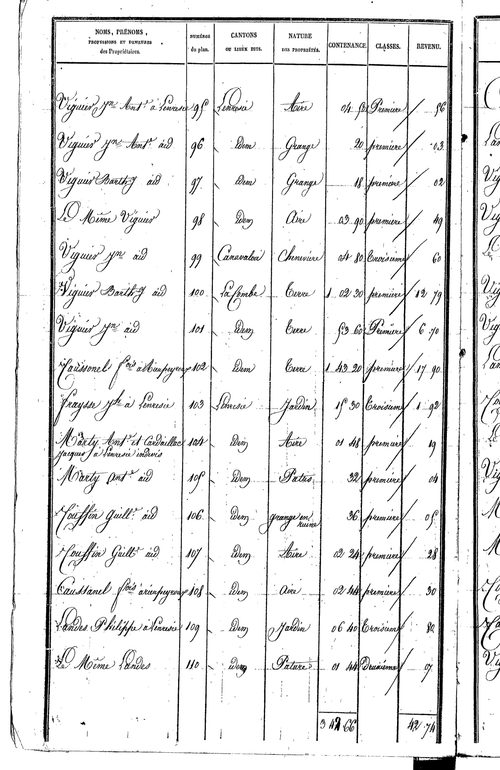 NOMS, PRÉNOMS, PROFESSIONS ET DEMEURES des Propriétaires. NUMÉROS du plan. CANTONS OU LIEUX DITS. NATURE DES PROPRIÉTÉS. CONTENANCE. CLASSES. REVENU.
Viguier Jn Ant. à Lenresie 95 Lenresie Aire 04 52 Première 56
Viguier Jn Ant. aid 96 idem Grange 20 première 03
Viguier Barth.y aid 97 idem Grange 18 première 02
Le Même Viguier 98 idem Aire 03 90 première 49
Viguier Jn aid 99 Canavalou Cheneviere 04 80 Troisieme 60
Viguier Barth.y aid 100 La Combe Terre 1 02 30 première 12 79
Viguier Jn aid 101 idem Terre 53 60 Première 6 70
Caussanel fois 102 idem Terre 1 43 20 première 17 90
fraysse à Lenresie 103 Lenresie Jardin 15 30 Troisieme 1 92
Marty Ant. et Cardaillac Jacques à Lenresie indivis 104 idem Aire 01 48 première 19
Marty Ant. aid 105 idem Patus 32 première 04
Jouffin Guill. aid 106 idem grange en ruine 36 première 05
Jouffin Guill. aid 107 idem Aire 02 24 première 28
Caussanel fois 108 idem Aire 02 44 première 30
Landes Philippe à Lenresie 109 idem Jardin 06 40 Troisieme 80
Le Même Landes 110 idem Pature 01 44 Deuxieme 07
3 42 66 42 74